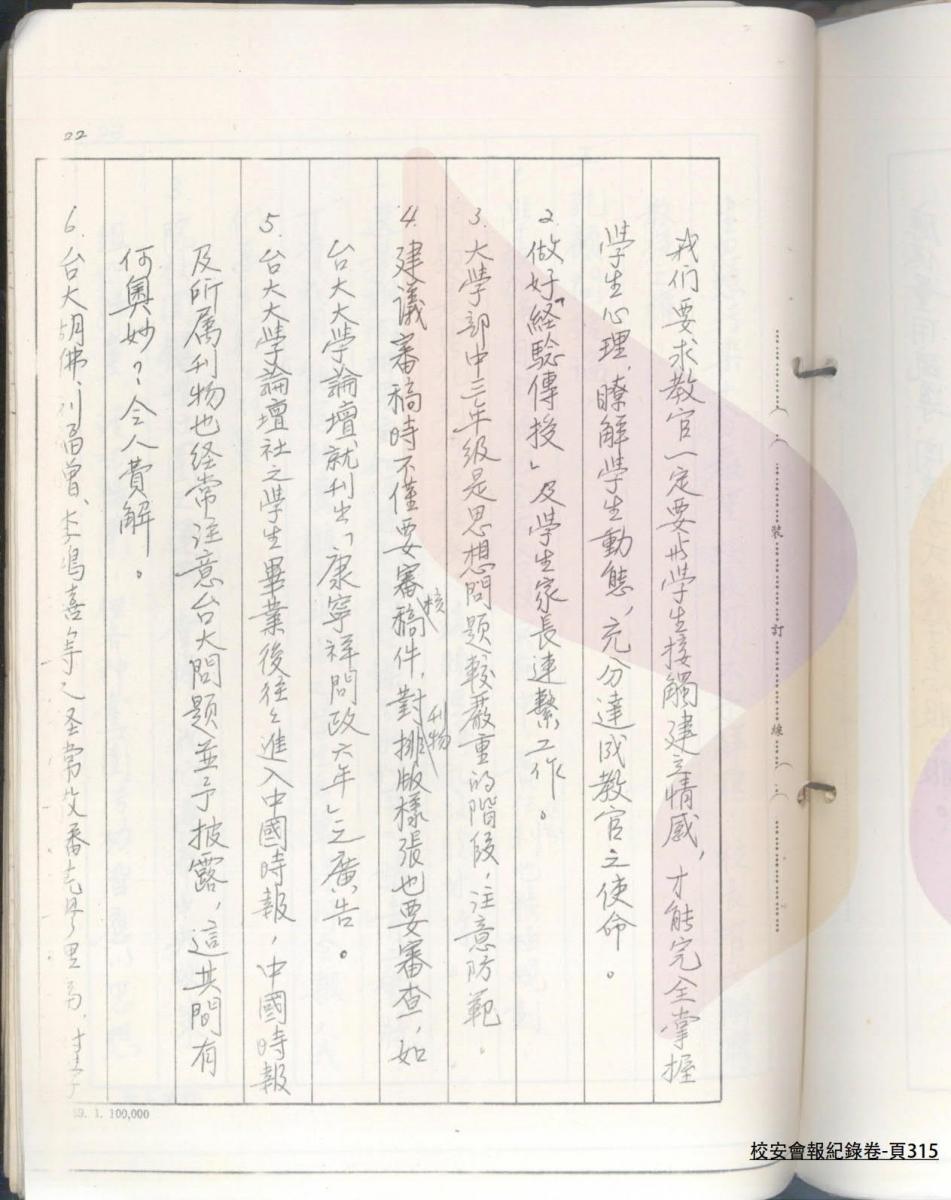 22
我们要求教官一定要与学生接觸建立情感，才能完全掌握
學生心理，瞭解學生動態，充分達成教官之使命。
2.做好「経驗傳授」及學生家長連繫工作。
3.大學部中三年级是思想問題較嚴重的階段，注意防範。
4.建議審稿時不僅要審核稿件，對刊物排版樣張也要審查，如
台大大學論壇就刊出「康寧祥問政六年」之廣告。
5.台大大學論壇社之學生畢業後往々進入中國時報，中國時報
及所属刊物也経常注意台大問題並予披露，這其間有
何奧妙？令人費解。
6.台大胡佛、李鴻禧等
裝
訂
線
59. 1. 100,000
校安會報紀錄卷-頁315